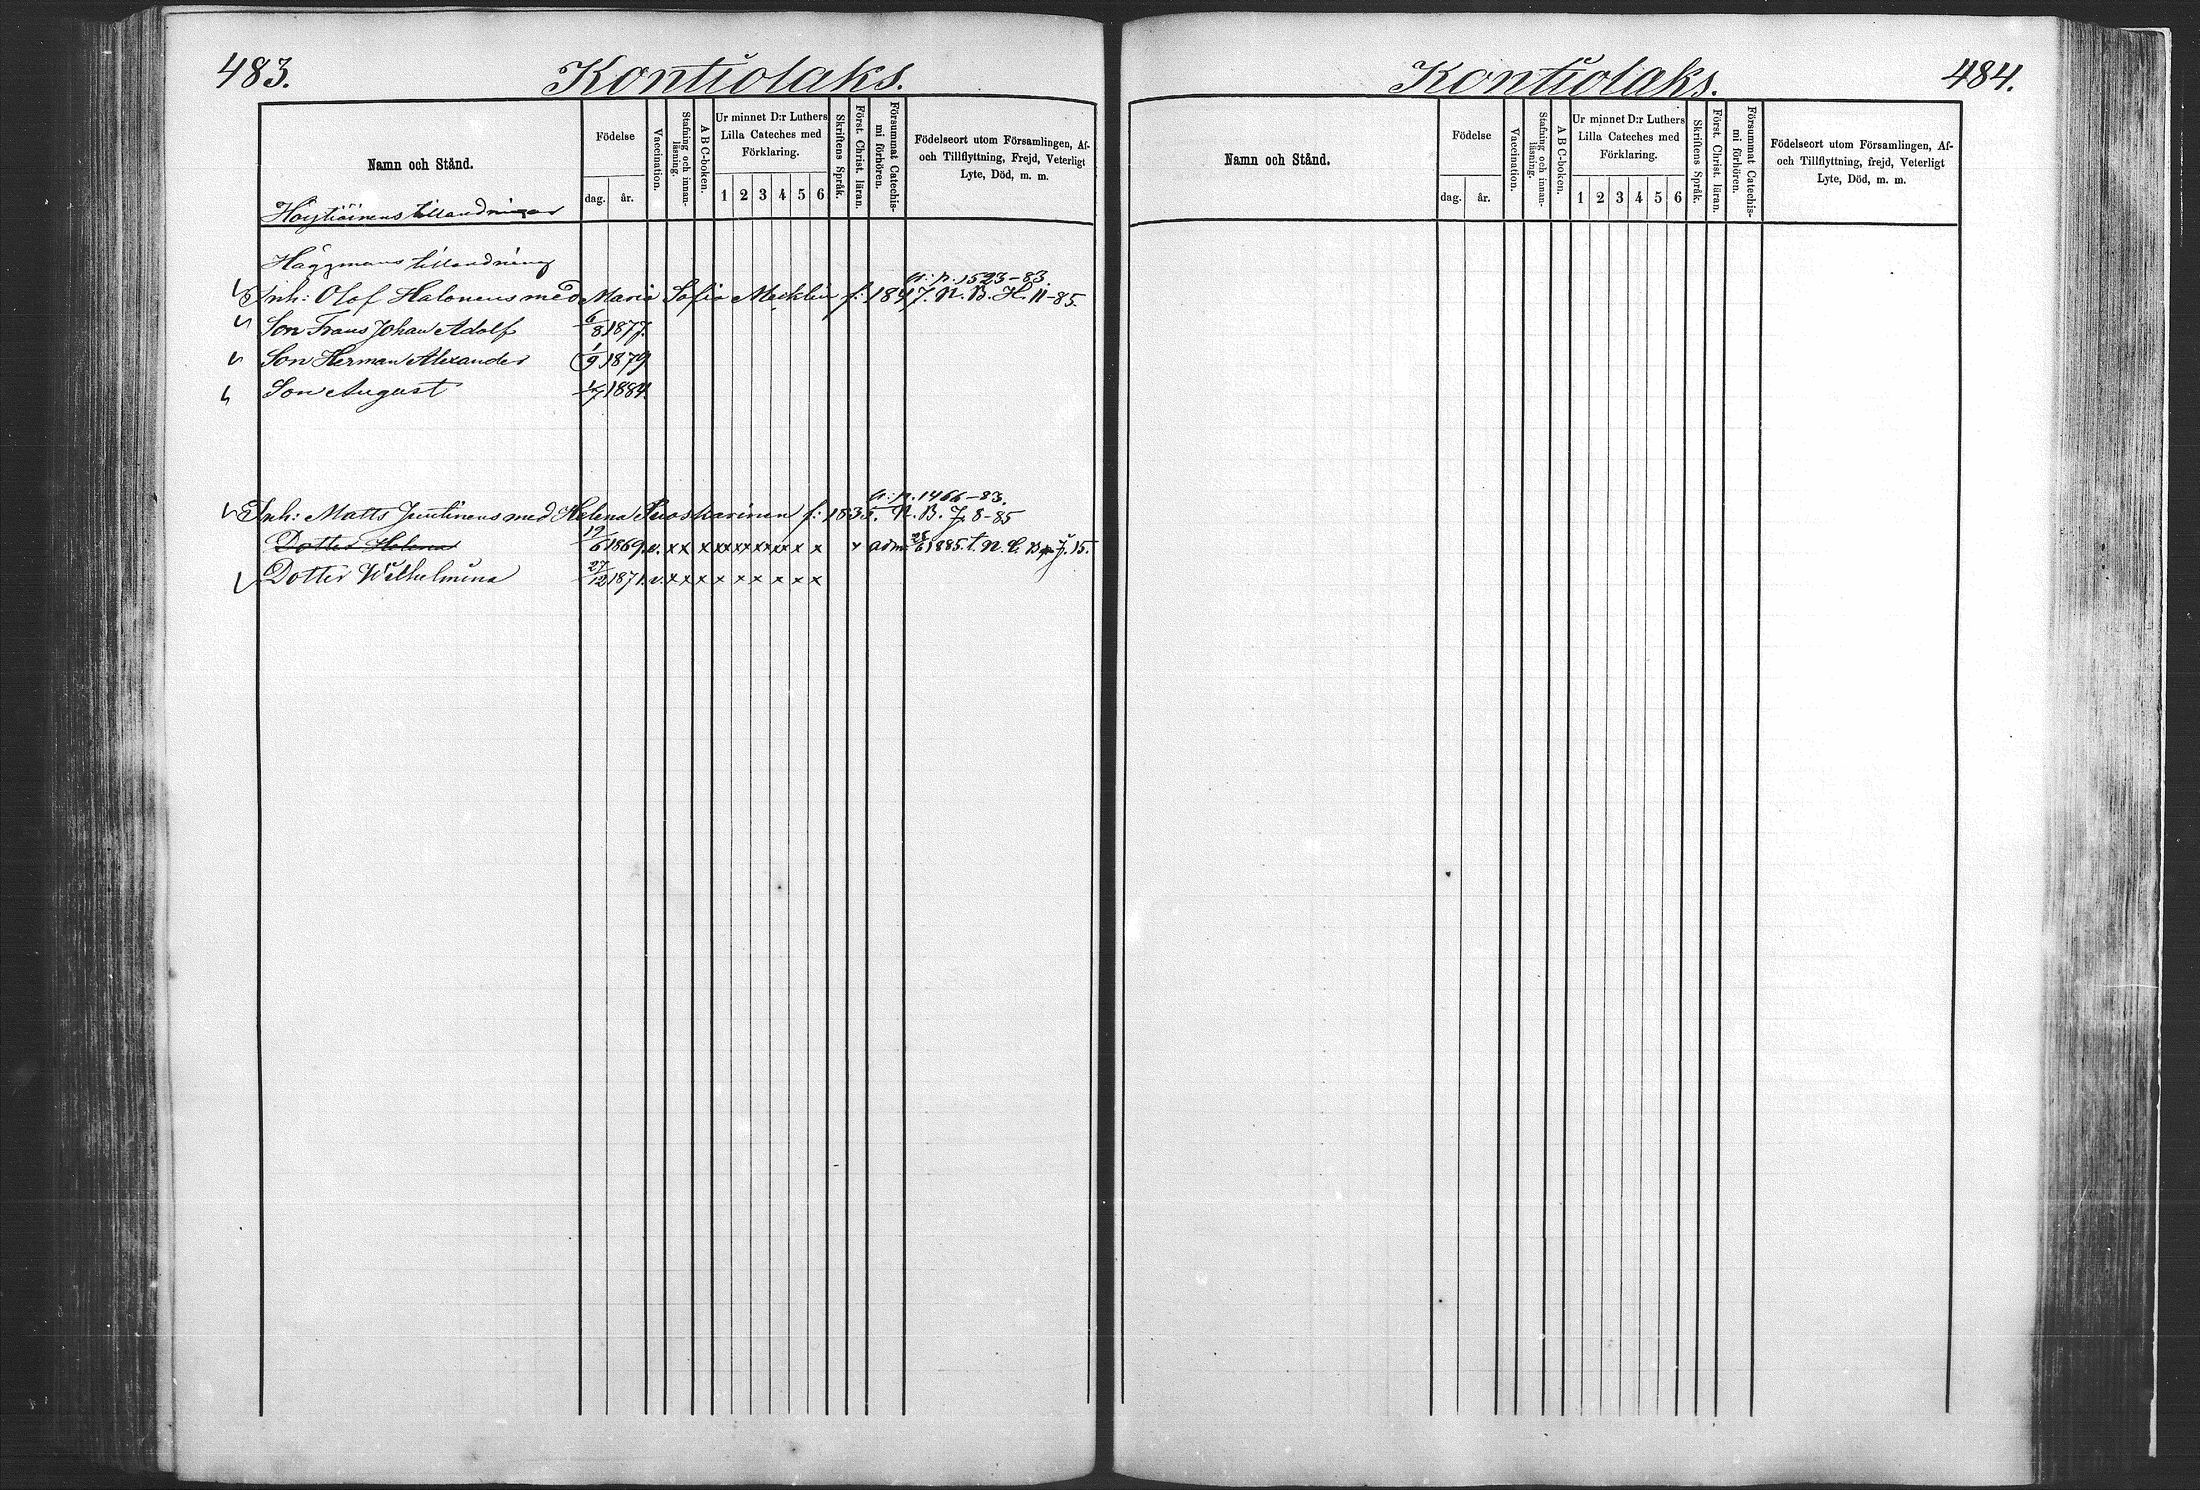 483.
Kontiolaks.
Namn och Stånd.
Födelse
dag. år.
Vaccination.
Stafning och innan-läsning.
A B C-boken.
Ur minnet D:r Luthers
Lilla Cateches med
Förklaring.
1 2 3 4 5 6
Skriftens Språk.
Först. Christ. läran.
Försummat Catechis-
mi förhören.
Födelseort utom Församlingen, Af-
och Tillflyttning, Frejd, Veterligt
Lyte, Död, m. m.
Höytiäinens tillandningar
Häggmans tillandning
a: p. 1523-83.
Inh: Olof Halonens med Maria Sofia Mecklin f: 1847. N. B. H. 11-85.
Son Frans Johan Adolf 6/8 1877.
Son Herman Alexander 1/9 1879
Son August 1/7 1884.
a: p. 1466-83.
Inh: Matts Juutinens med Helena Suoskarinen f: 1835. N. B. J. 8-85
Dotter Helena 19/6 1869. v. x x x x x x x x x x x adm. 28/6 1885. t. N. C. B. J. 15.
Dotter Wilhelmina 27/12 1871. v. x x x x x x x x x
Kontiolaks.
484.
Namn och Stånd.
Födelse
dag. år.
Vaccination.
Stafning och innan-läsning.
A B C-boken.
Ur minnet D:r Luthers
Lilla Cateches med
Förklaring.
1 2 3 4 5 6
Skriftens Språk.
Först. Christ. läran.
Försummat Catechis-
mi förhören.
Födelseort utom Församlingen, Af-
och Tillflyttning, frejd, Veterligt
Lyte, Död, m. m.